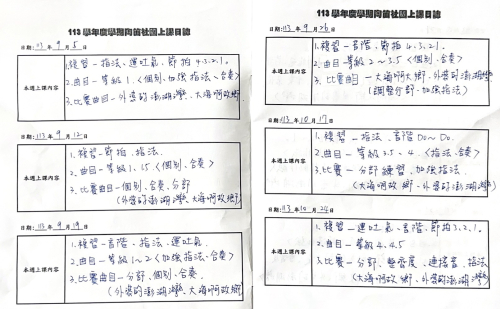 113 學年度學期向笛社團上課日誌
日期: 113 年 9 月 5 日
本週上課內容
1.複習－指法、運吐氣、節拍4.3.2.1.
2.曲目－等級1.〈個別、加強指法、合奏〉
3.比賽曲目－外婆的澎湖灣、大海啊故鄉.
日期: 113 年 9 月 12 日
本週上課內容
1.複習－節拍、指法.
2.曲目－等級1.1.5〈個別、合奏〉
3.比賽曲目－個別、合奏、分部
(外婆的澎湖灣、大海啊故鄉)
日期: 113 年 9 月 19 日
本週上課內容
1.複習－音階、指法、運吐氣.
2.曲目－等級1~2〈加強指法、合奏〉
3.比賽曲目－分部、個別、合奏.
(外婆的澎湖灣、大海啊故鄉)
113 學年度學期向笛社團上課日誌
日期: 113 年 9 月 26 日
本週上課內容
1.複習－音階、節拍4.3.2.1.
2.曲目－等級2~3.5〈個別、合奏〉
3.比賽曲目－大海啊故鄉、外婆的澎湖灣
(調整分部、加強指法)
日期: 113 年 10 月 17 日
本週上課內容
1.複習－指法、音階 Do~Do.
2.曲目－等級3.5-4.〈指法、合奏〉
3.比賽－分部練習、加強指法.
(大海啊故鄉、外婆的澎湖灣)
日期: 113 年 10 月 24 日
本週上課內容
1.複習－運吐氣、音階、節拍3.2.1.
2.曲目－等級4.4.5
3.比賽－分部、整齊度、連接音、指法
(大海啊故鄉、外婆的澎湖灣)